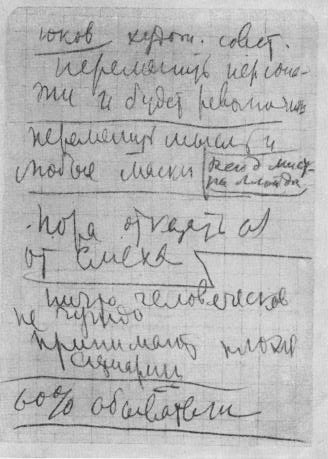 юков худож. совет.
переменить персона-
жи и будет революция
переменить мысль и
любые маски
рейд мист-
ра Ллойда
Пора отказаться
от смеха
ничто человеческое
не чуждо
принимают плохие
сценарии
60% обыватели